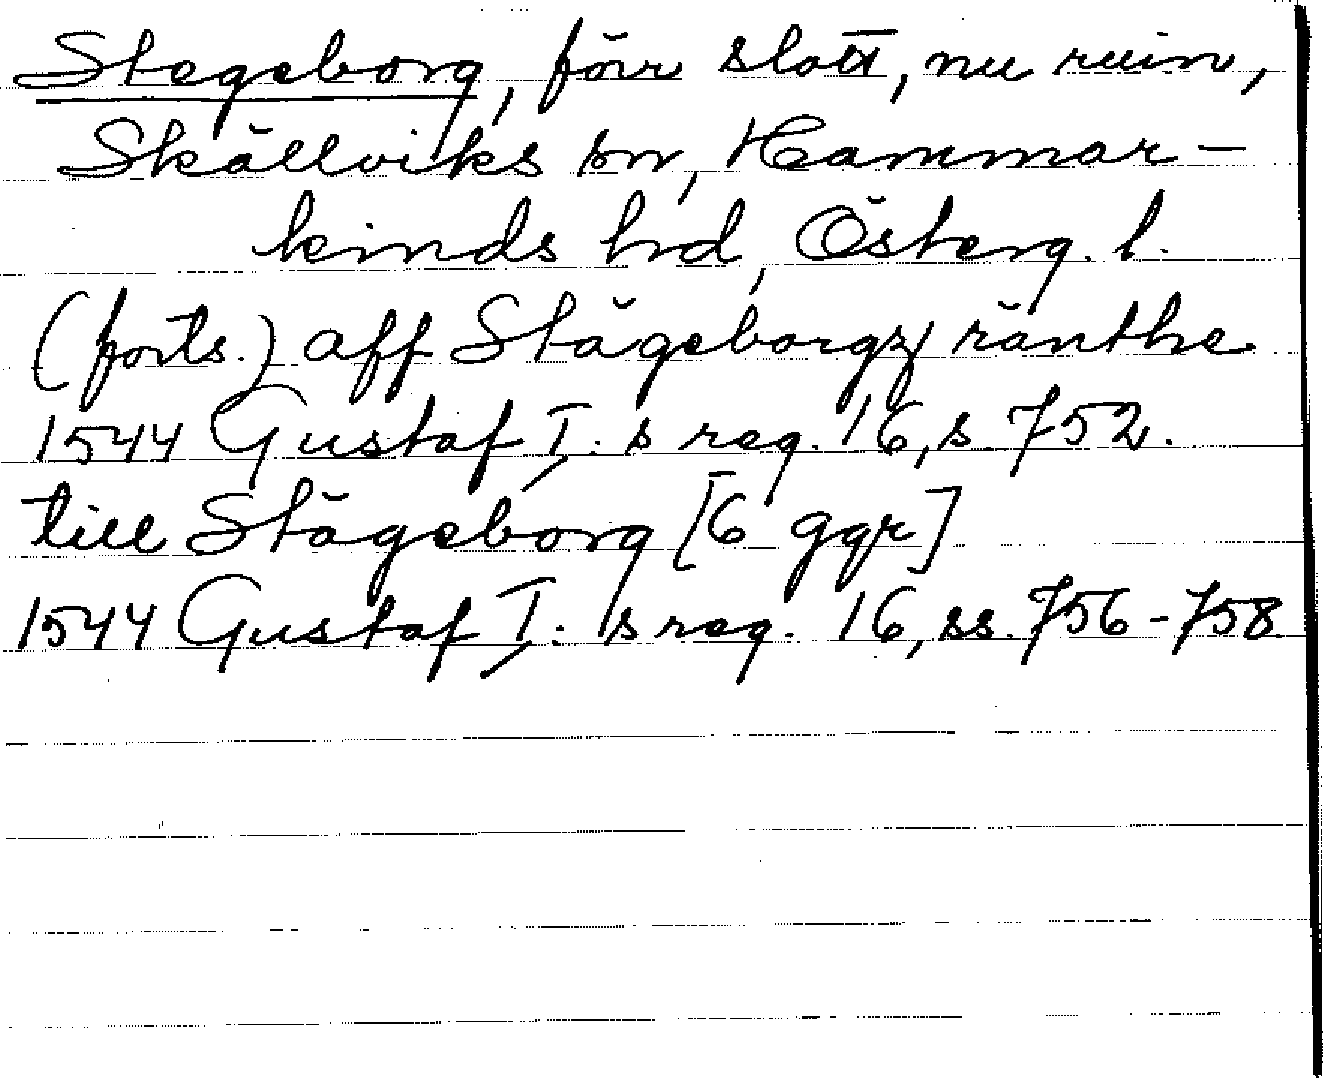 Stegeborg, förr slott, nu ruin,
Skällviks sn, Hammar-
kinds hd, Österg. l.
(forts.) aff Stägeborgz ränthe
1544 Gustaf I: s reg. 16, s. 752.
till Stägeborg [6 ggr]
1544 Gustaf I: s reg. 16, ss. 756-758